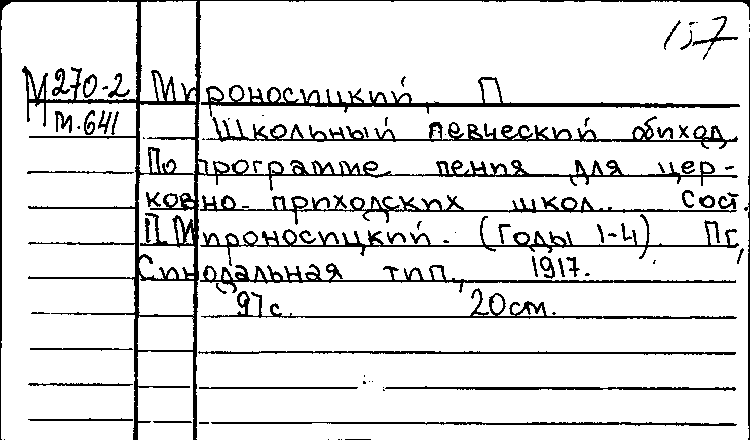 157
М270-2 Мироносицкий, П
т.641 Школьный певческий обиход.
По программе пения для цер-
ковно-приходских школ. Сост.
П. Мироносицкий. (Годы 1-4). Пг,
Синодальная тип., 1917.
97с. 20см.